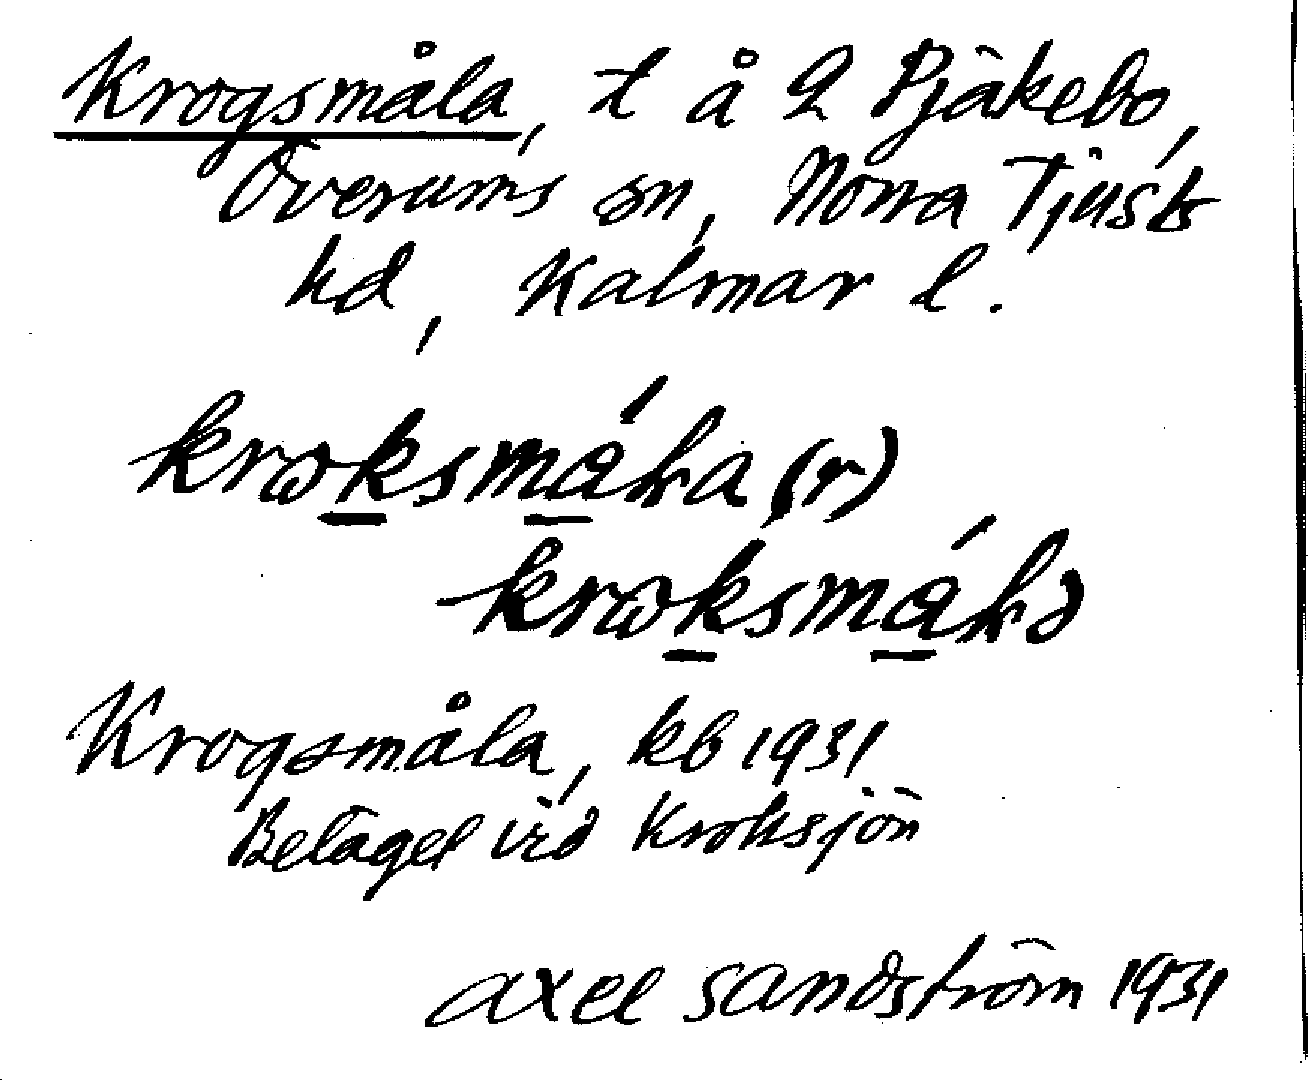 Krogsmåla, t å 2 Pjäkebo,
Överums sn, Norra Tjusts
hd, Kalmar l.
krɷksmáƚa(r)
krɷksmáƚə
Krogsmåla, kb 1931
Beläget vid Kroksjön
Axel Sandström 1931